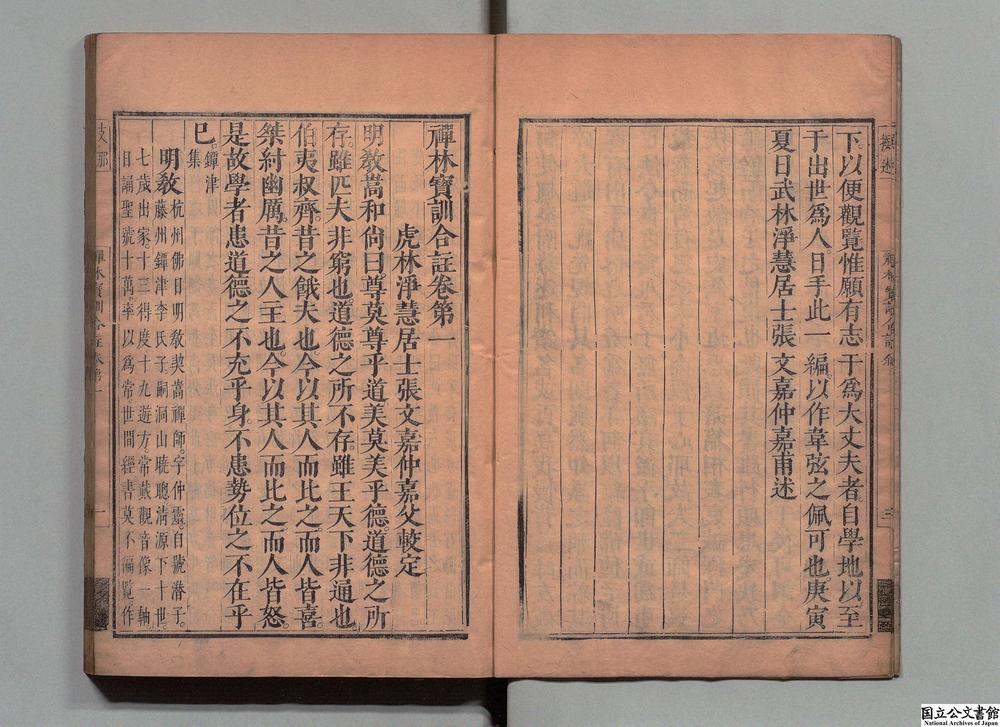 下以便觀覽惟願有志于為大丈夫者自學地以至
于出世爲人日手此一編以作韋弦之佩可也庚寅
夏日武林淨慧居士張文嘉仲嘉甫述
禪林寶訓合註卷第一
虎林淨慧居士張文嘉仲嘉父較定
明敎嵩和尙曰尊莫尊乎道美莫美乎德道德之所
存雖匹夫非窮也道德之所不存雖王天下非通也
伯夷叔齊昔之餓夫也今以其人而比之而人皆喜
桀紂幽厲昔之人主也今以其人而比之而人皆怒
是故學者患道德之不充乎身不患勢位之不在乎
已鐔津集
明敎杭州佛日明敎契嵩禪師字仲靈自號潛子
藤州鐔津李氏子嗣洞山曉聰淸源下十世
七歲出家十三得度十九遊方常戴觀音像一軸
日誦聖號十萬率以爲常世間經書莫不徧覽作
支那
禪林寶訓合註卷第一
一
撰述
三
国立公文書館
National Archives of Japan